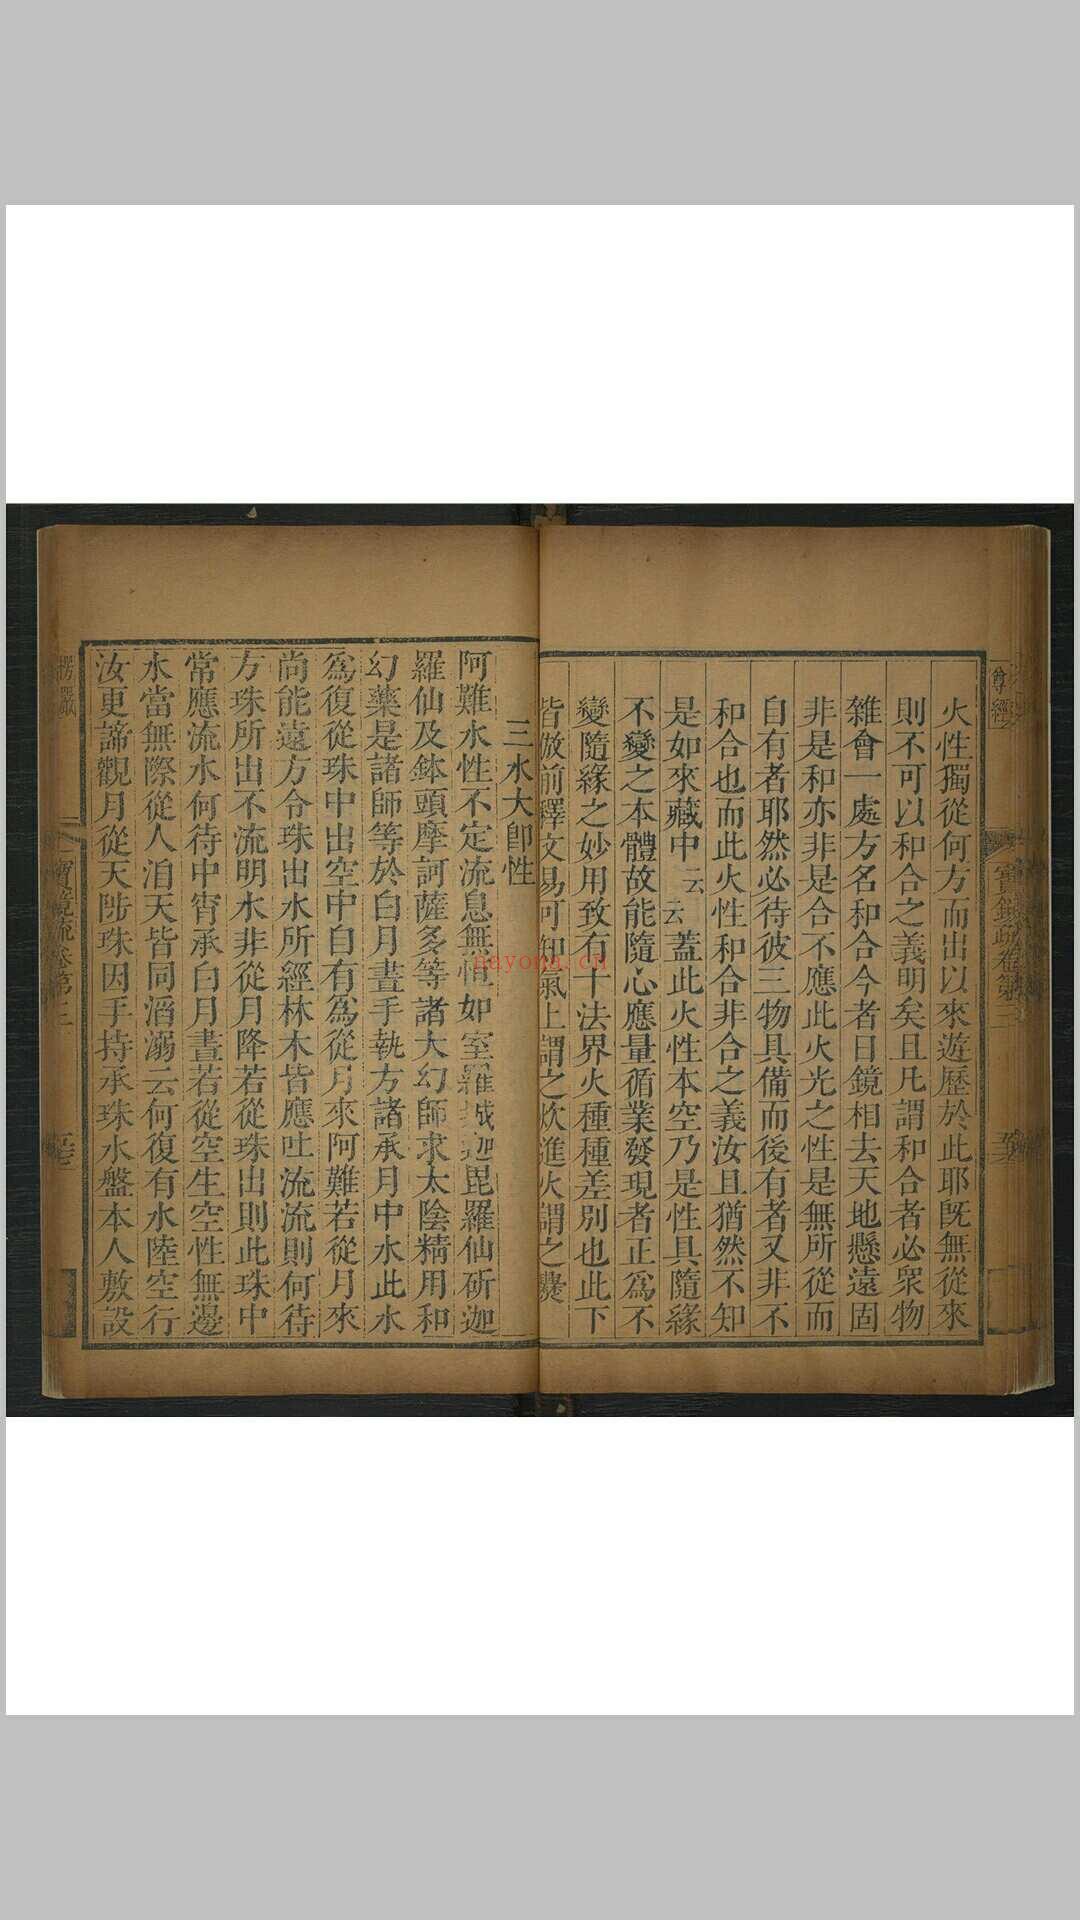 火性獨從何方而出以來遊歷於此耶旣無從來
則不可以和合之義明矣且凡謂和合者必衆物
雜會一處方名和合今者日鏡相去天地懸遠固
非是和亦非是合不應此火光之性是無所從而
自有者耶然必待彼三物具備而後有者又非不
和合也而此火性和合非合之義汝且猶然不知
是如來藏中云云蓋此火性本空乃是性具隨緣
不變之本體故能隨心應量循業發現者正爲不
變隨緣之妙用致有十法界火種種差別也此下
皆倣前釋文易可知氣上謂之炊進火謂之㸑
三水大卽性
阿難水性不定流息無恒如室羅城迦毘羅仙斫迦
羅仙及鉢頭摩訶薩多等諸大幻師求太陰精用和
幻藥是諸師等於白月晝手執方諸承月中水此水
爲復從珠中出空中自有爲從月來阿難若從月來
尚能遠方令珠出水所經林木皆應吐流流則何待
方珠所出不流明水非從月降若從珠出則此珠中
常應流水何待中宵承白月晝若從空生空性無邊
水當無際從人洎天皆同滔溺云何復有水陸空行
汝更諦觀月從天陟珠因手持承珠水盤本人敷設
楞嚴
寶鏡疏卷第三
nayona.cn